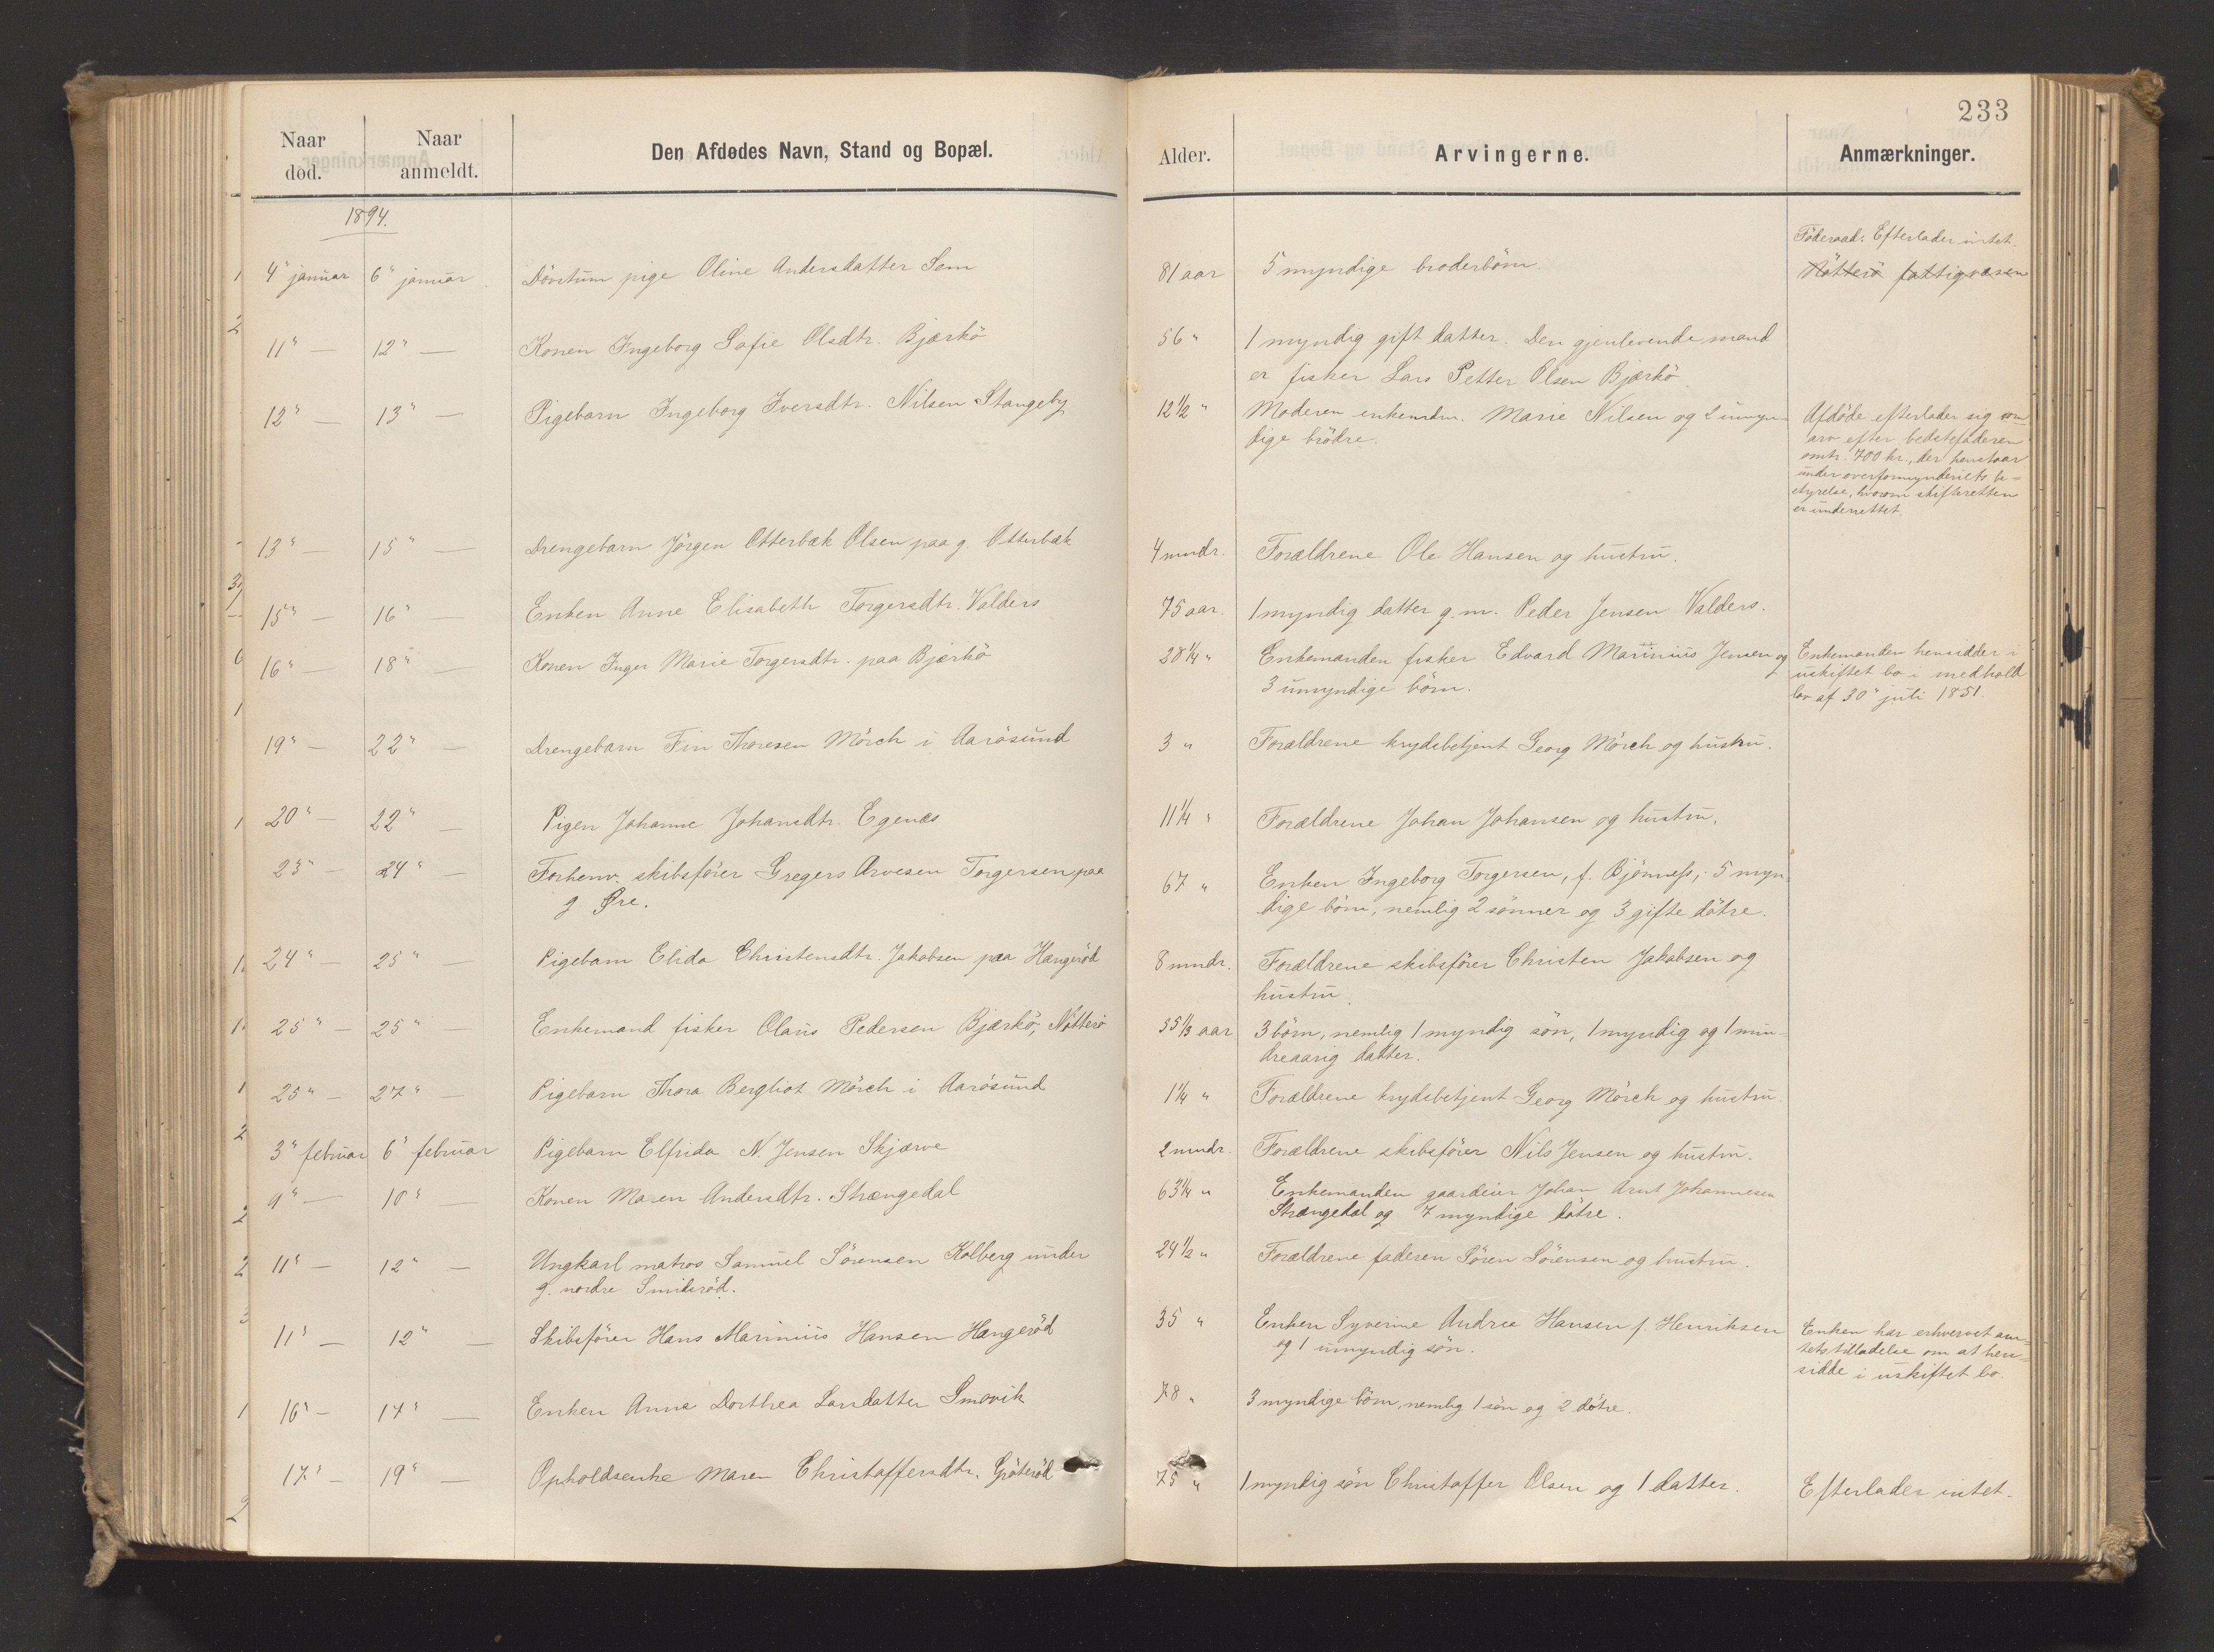 233
Naar død. Naar anmeldt. Den Afdødes Navn, Stand og Bopæl. Alder. Arvingerne. Anmærkninger.
1894.
Föderaad: Efterlader intet.
4" januar 6" januar Dövstum pige Oline Andersdatter Sem 81 aar 5 myndige broderbörn. Nötterö fattigvæsen
11" — 12" — Konen Ingeborg Sofie Olsdtr. Bjærkö 56 " 1 myndig gift datter. Den gjenlevende mand
er fisker Lars Petter Olsen Bjærkö
12" — 13" — Pigebarn Ingeborg Iversdtr. Nilsen Stangeby 12 1/2 " Moderen enkemdm. Marie Nilsen og 2 umyn- Afdöde efterlader sig som
dige brödre. arv efter bedstefaderen
omtr. 700 kr., der henstaar
under overformynderiets be-
styrelse, hvorom skifteretten
er underrettet.
13" — 15" — Drengebarn Jörgen Otterbæk Olsen paa g. Otterbæk 4 mndr. Forældrene Ole Hansen og hustru.
15" — 16" — Enken Anne Elisabeth Torgersdtr. Valders 75 aar. 1 myndig datter g.m. Peder Jensen Valders.
16" — 18" — Konen Inger Marie Torgersdtr. paa Bjærkö 28 1/4 " Enkemanden fisker Edvard Marinius Jensen og Enkemanden hensidder i
3 umyndige börn. uskiftet bo i medhold
lov af 30" juli 1851.
19" — 22" — Drengebarn Fin Thoresen Mörch i Aarösund 3 " Forældrene krydsbetjent Georg Mörch og hustru.
20" — 22" — Pigen Johanne Johansdtr. Egenæs 11 1/4 " Forældrene Johan Johansen og hustru.
23" — 24" — Forhenv. skibsförer Gregers Arvesen Torgersen paa 67 " Enken Ingeborg Torgersen, f. Bjönness, 5 myn-
g Øre. dige börn, nemlig 2 sönner og 3 gifte dötre.
24" — 25" — Pigebarn Elida Christensdtr. Jakobsen paa Hængeröd 8 mndr. Forældrene skibsförer Christen Jakobsen og
hustru.
25" — 25" — Enkemand fisker Olaus Pedersen Bjærkö, Nötterö 55 1/3 aar 3 börn, nemlig 1 myndig sön, 1 myndig og 1 min-
dreaarig datter.
25" — 27" — Pigebarn Thora Bergliot Mörch i Aarösund 1 1/4 " Forældrene krydsbetjent Georg Mörch og hustru.
3" februar 6" februar Pigebarn Elfrida N. Jensen Skjærve 2 mndr. Forældrene skibsförer Nils Jensen og hustru.
9" — 10" — Konen Maren Andersdtr. Strængedal 63 1/4 " Enkemanden gaardeier Johan Arnt Johannesen
Strængedal og 7 myndige dötre.
11" — 12" — Ungkarl matros Samuel Sörensen Kolberg under 24 1/2 " Forældrene faderen Sören Sörensen og hustru.
g. nordre Smideröd.
11" — 12" — Skibsförer Hans Marinius Hansen Hængeröd 35 " Enken Syverine Andrea Hansen f. Henriksen Enken har erhvervet am-
og 1 umyndig sön. tets tilladelse om at hen-
sidde i uskiftet bo.
16" — 17" — Enken Anna Dorthea Larsdatter Smøvik 78 " 3 myndige börn, nemlig 1 sön og 2 dötre.
17" — 19" — Opholdsenke Maren Christoffersdtr. Gröteröd 75 " 1 myndig sön Christoffer Olsen og 1 datter. Efterlader intet.